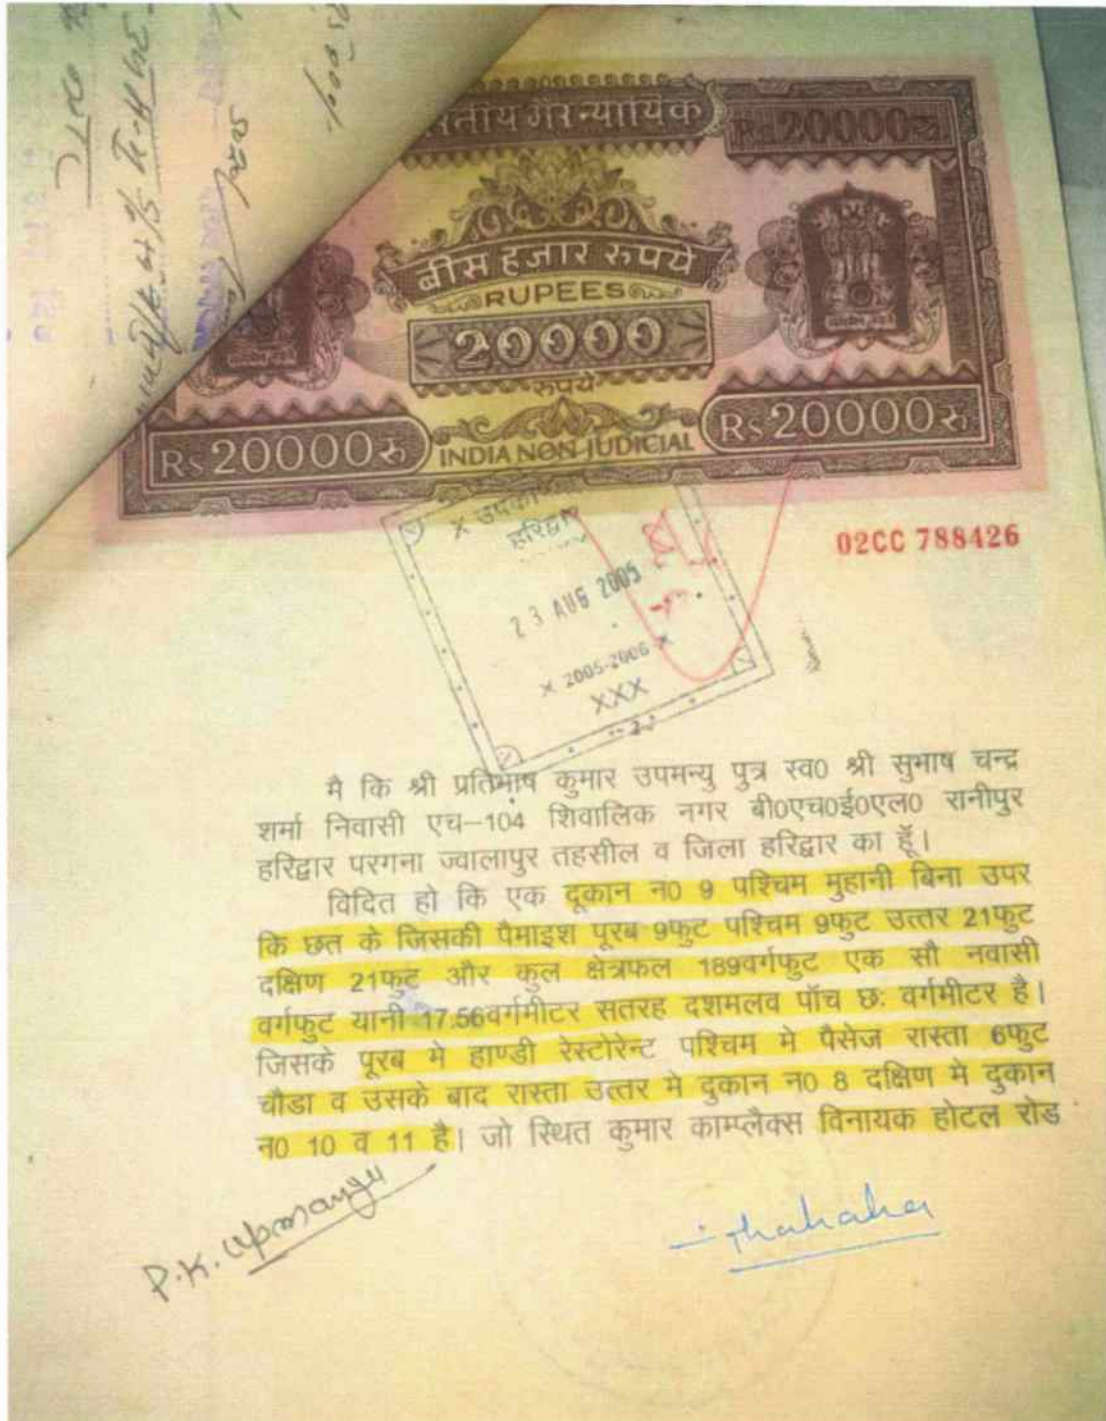 Rs 20000 रु
बीस हजार रुपये
RUPEES
20000
रुपये
Rs 20000 रु
INDIA NON JUDICIAL
Rs 20000 रु
02CC 788426
हरिद्वार
23 AUG 2005
X 2005-2006 X
XXX
मै कि श्री प्रतिभाष कुमार उपमन्यु पुत्र स्व0 श्री सुभाष चन्द्र
शर्मा निवासी एच–104 शिवालिक नगर बी0एच0ई0एल0 रानीपुर
हरिद्वार परगना ज्वालापुर तहसील व जिला हरिद्वार का हूॅ।
विदित हो कि एक दूकान न0 9 पश्चिम मुहानी बिना उपर
कि छत के जिसकी पैमाइश पूरब 9फुट पश्चिम 9फुट उत्तर 21फुट
दक्षिण 21फुट और कुल क्षेत्रफल 189वर्गफुट एक सौ नवासी
वर्गफुट यानी 17.56वर्गमीटर सतरह दशमलव पॉच छः वर्गमीटर है।
जिसके पूरब मे हाण्डी रेस्टोरेन्ट पश्चिम मे पैसेज रास्ता 6फुट
चौडा व उसके बाद रास्ता उत्तर मे दुकान न0 8 दक्षिण मे दुकान
न0 10 व 11 है। जो स्थित कुमार काम्प्लैक्स विनायक होटल रोड
P.K. Upmanyu